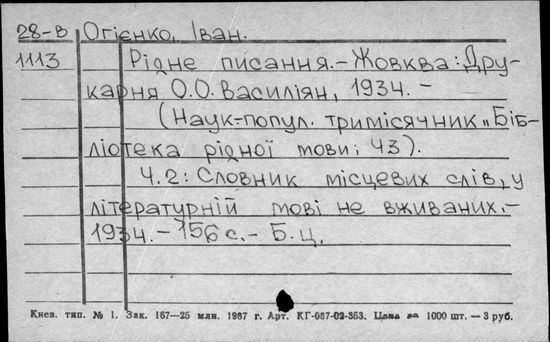 28-В Огієнко, Іван.
1113 Рідне писання.- Жовква: Дру-
карня О.О. Василіян, 1934. -
(Наук-попул. тримісячник „Біб-
ліотека рідної мови; Ч3).
Ч.2: Словник місцевих слів, у
літературній мові не вживаних.-
1934.- 156 с.- Б.ц.
Киев. тип. № 1. Зак. 167—25 млн. 1987 г. Арт. КГ-087-02-353. Цена за 1000 шт. — 3 руб.